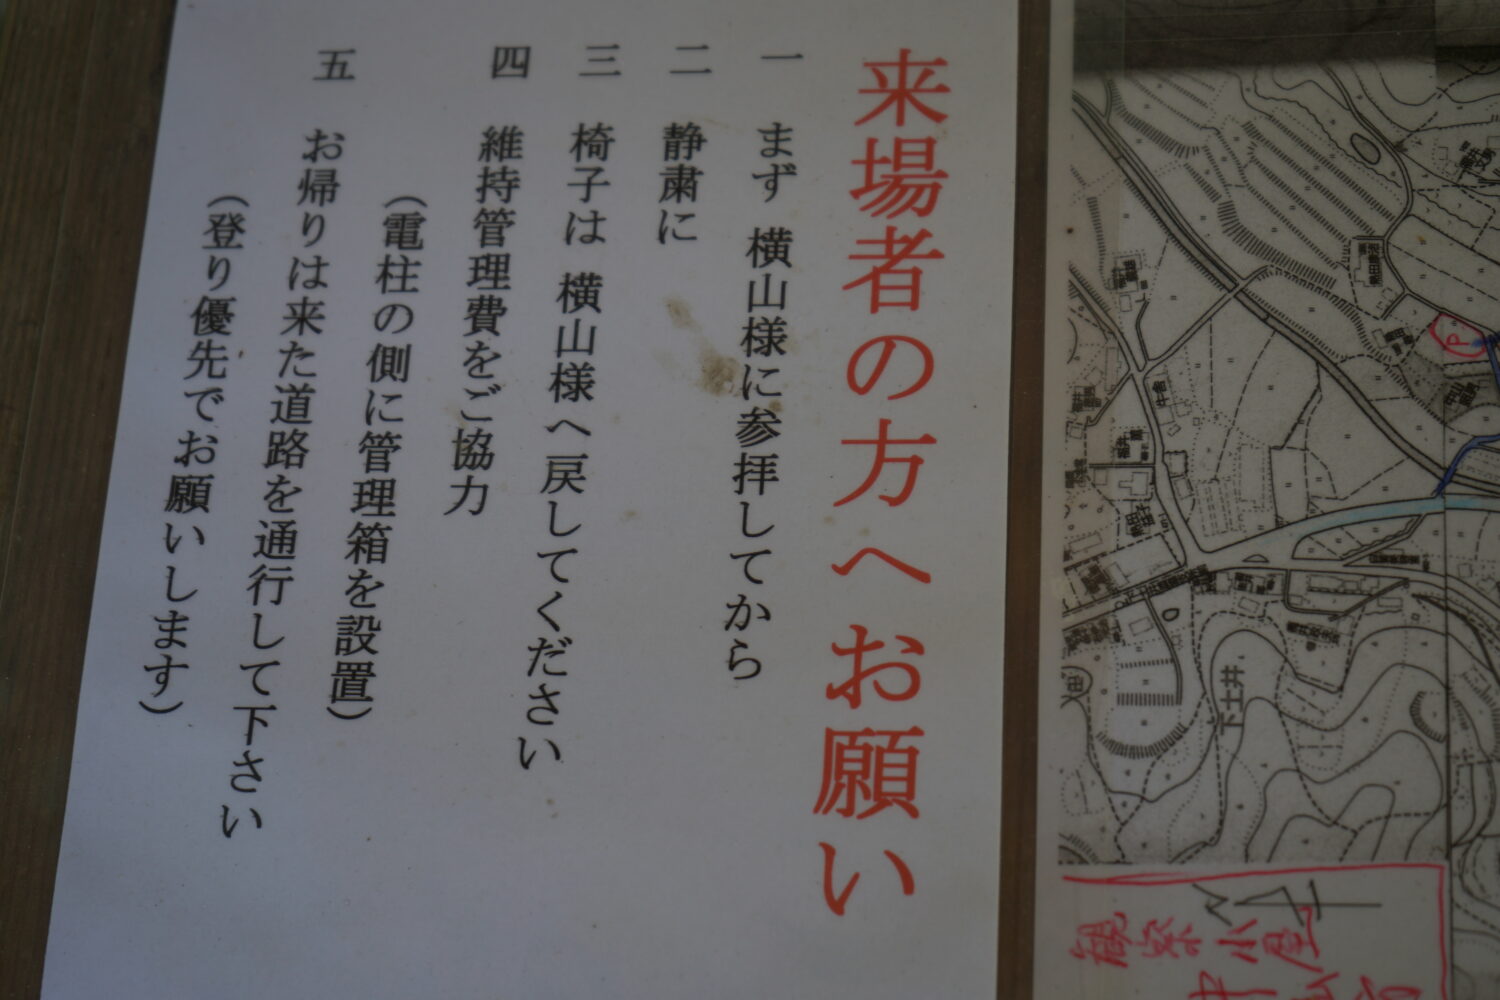 来場者の方へお願い
一 まず 横山様に参拝してから
二 静粛に
三 椅子は 横山様へ戻してください
四 維持管理費をご協力
(電柱の側に管理箱を設置)
五 お帰りは来た道路を通行して下さい
(登り優先でお願いします)
P
牛舎
下土井
観察小屋